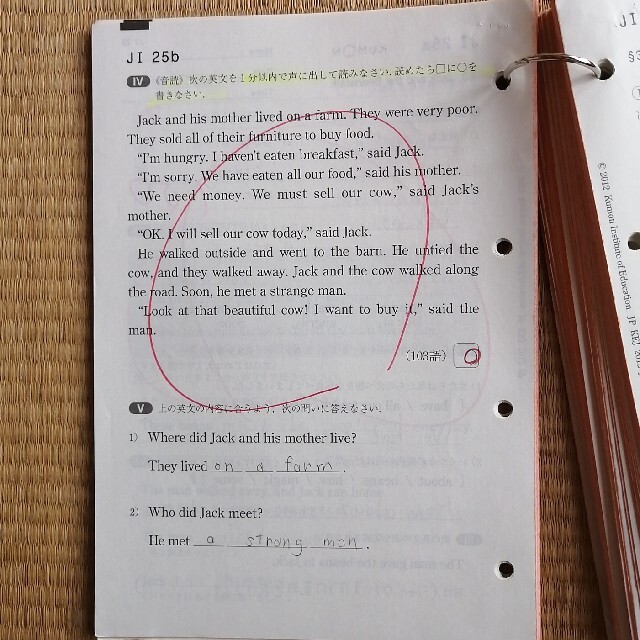 JI 25b
Ⅳ 《音読》次の英文を1分以内で声に出して読みなさい。読めたら□に○を
書きなさい。
Jack and his mother lived on a farm. They were very poor.
They sold all of their furniture to buy food.
“I’m hungry. I haven’t eaten breakfast,” said Jack.
“I’m sorry. We have eaten all our food,” said his mother.
“We need money. We must sell our cow,” said Jack’s
mother.
“OK. I will sell our cow today,” said Jack.
He walked outside and went to the barn. He untied the
cow, and they walked away. Jack and the cow walked along
the road. Soon, he met a strange man.
“Look at that beautiful cow! I want to buy it,” said the
man.
(103語)
Ⅴ 上の英文の内容に合うよう、次の問いに答えなさい。
1) Where did Jack and his mother live?
They lived on a farm.
2) Who did Jack meet?
He met a strong man.
© 2012 Kumon Institute of Education JP KIE
JI